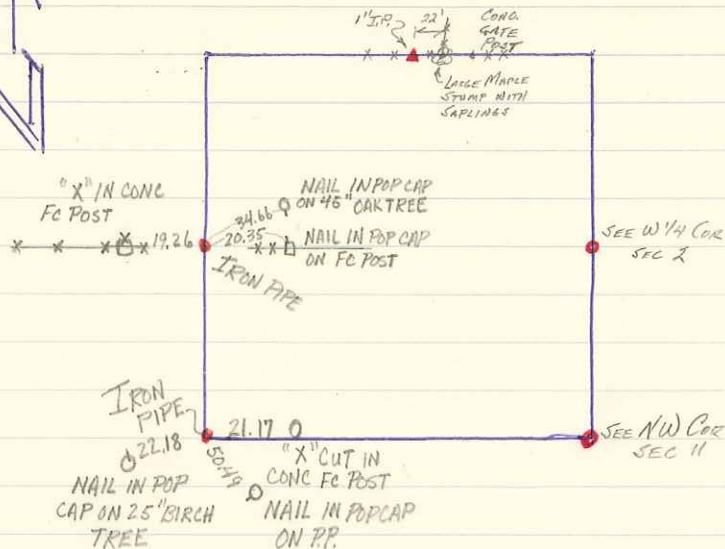 1" I.P.
22'
CONC.
GATE
POST
LARGE MAPLE
STUMP WITH
SAPLINGS
"X" IN CONC
FC POST
19.26
34.66
NAIL IN POP CAP
ON 45" OAK TREE
20.35
NAIL IN POP CAP
ON FC POST
IRON PIPE
SEE W 1/4 COR
SEC 2
IRON
PIPE
22.18
NAIL IN POP
CAP ON 25" BIRCH
TREE
21.17
"X" CUT IN
CONC FC POST
50.49
NAIL IN POP CAP
ON P.P.
SEE NW COR
SEC 11